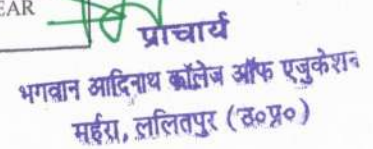 EAR
प्राचार्य
भगवान आदिनाथ कॉलेज ऑफ एजुकेशन
मर्हरा, ललितपुर (उ०प्र०)